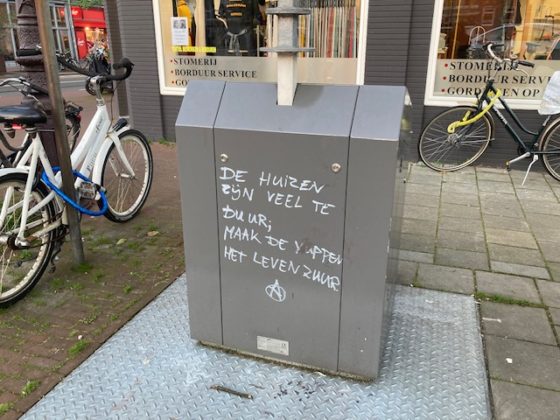 STOMERIJ
BORDUUR SERVICE
STOMERIJ
BORDUUR SERVICE
DE HUIZEN
ZIJN VEEL TE
DUUR;
MAAK DE YUPPEN
HET LEVEN ZUUR